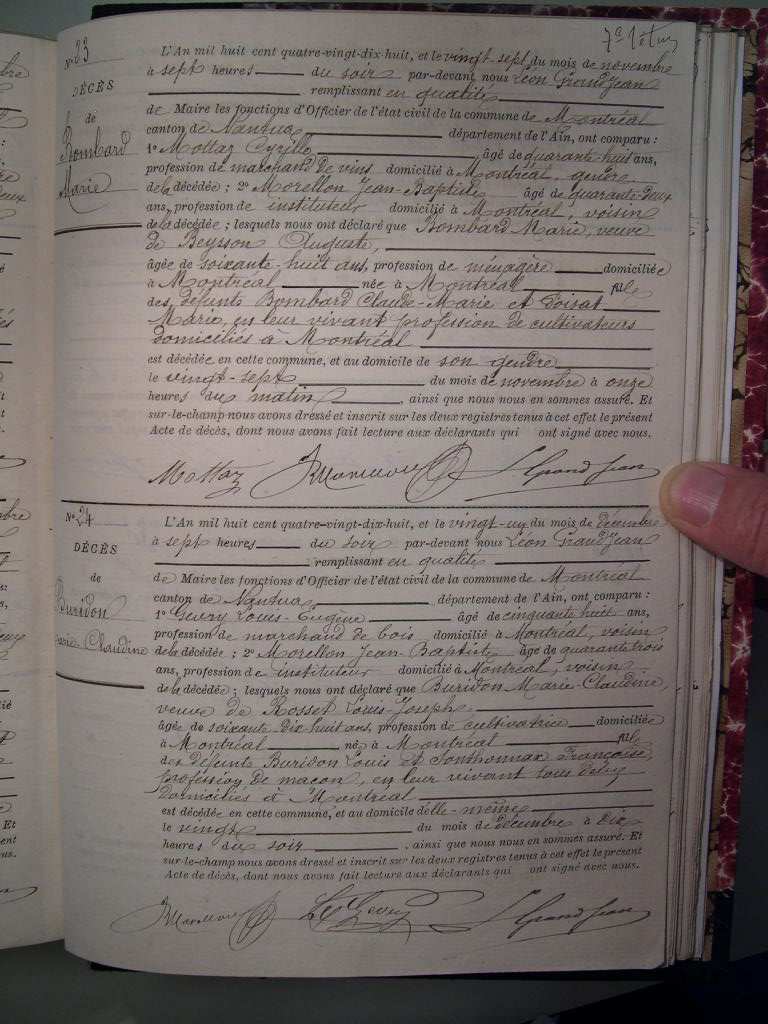 N° 23
DÉCÈS
de
Bombard
Marie
L'An mil huit cent quatre-vingt-dix-huit, et le vingt-sept du mois de novembre
à sept heures du soir par-devant nous Léon Grandjean
remplissant en qualité
de Maire les fonctions d'Officier de l'état civil de la commune de Montréal
canton de Nantua département de l'Ain, ont comparu :
1° Mottaz Cyrille âgé de quarante-huit ans,
profession de marchand de vins domicilié à Montréal, gendre
de la décédée ; 2° Morellon Jean-Baptiste âgé de quarante-deux
ans, profession de instituteur domicilié à Montréal, voisin
de la décédée ; lesquels nous ont déclaré que Bombard Marie, veuve
de Beysson Auguste,
âgée de soixante-huit ans, profession de ménagère domiciliée
à Montréal née à Montréal fille
des défunts Bombard Claude-Marie et Doisat
Marie, en leur vivant profession de cultivateurs
domiciliés à Montréal
est décédée en cette commune, et au domicile de son gendre
le vingt-sept du mois de novembre à onze
heures du matin, ainsi que nous nous en sommes assuré. Et
sur-le-champ nous avons dressé et inscrit sur les deux registres tenus à cet effet le présent
Acte de décès, dont nous avons fait lecture aux déclarants qui ont signé avec nous.
Mottaz JBMorellon LGrandjean
N° 24
DÉCÈS
de
Buridon
Marie-Claudine
L'An mil huit cent quatre-vingt-dix-huit, et le vingt-un du mois de décembre
à sept heures du soir par-devant nous Léon Grandjean
remplissant en qualité
de Maire les fonctions d'Officier de l'état civil de la commune de Montréal
canton de Nantua département de l'Ain, ont comparu :
1° Gevry Louis-Eugène âgé de cinquante huit ans,
profession de marchand de bois domicilié à Montréal, voisin
de la décédée ; 2° Morellon Jean-Baptiste âgé de quarante trois
ans, profession de instituteur domicilié à Montréal, voisin
de la décédée ; lesquels nous ont déclaré que Buridon Marie-Claudine,
veuve de Rosset Louis-Joseph
âgée de soixante-dix huit ans, profession de cultivatrice domiciliée
à Montréal née à Montréal fille
des défunts Buridon Louis et Sonthonnax Françoise,
profession de maçon, en leur vivant tous deux
domiciliés à Montréal
est décédée en cette commune, et au domicile d'elle-même
le vingt du mois de décembre à dix
heures du soir, ainsi que nous nous en sommes assuré. Et
sur-le-champ nous avons dressé et inscrit sur les deux registres tenus à cet effet le présent
Acte de décès, dont nous avons fait lecture aux déclarants qui ont signé avec nous.
JBMorellon LEGevry LGrandjean